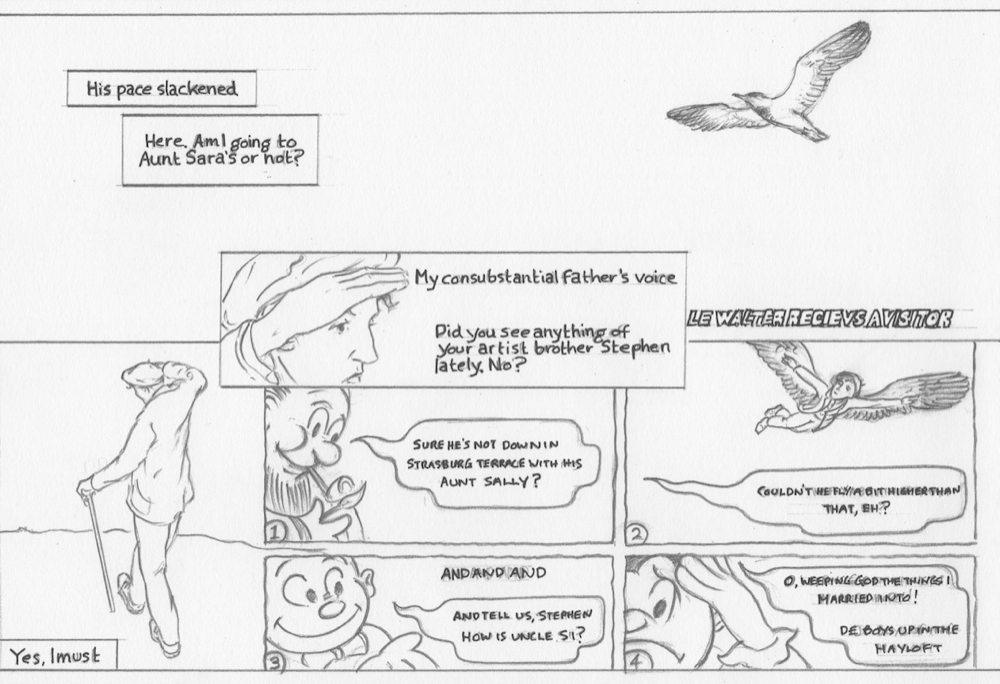 His pace slackened
Here. Am I going to
Aunt Sara's or not?
My consubstantial Father's voice
Did you see anything of
your artist brother Stephen
lately. No?
LE WALTER RECIEVS A VISITOR
SURE HE'S NOT DOWN IN
STRASBURG TERRACE WITH HIS
AUNT SALLY?
1
COULDN'T HE FLY A BIT HIGHER THAN
THAT, EH?
2
AND AND AND
AND TELL US, STEPHEN
HOW IS UNCLE SI?
3
O, WEEPING GOD THE THINGS I
MARRIED INTO!
DE BOYS UP IN THE
HAYLOFT
4
Yes, I must